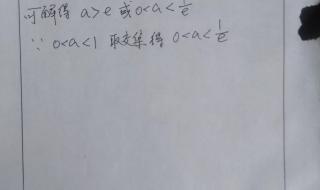 可解得 a>e 或 0<a<1/e
∵ 0<a<1 取交集得 0<a<1/e